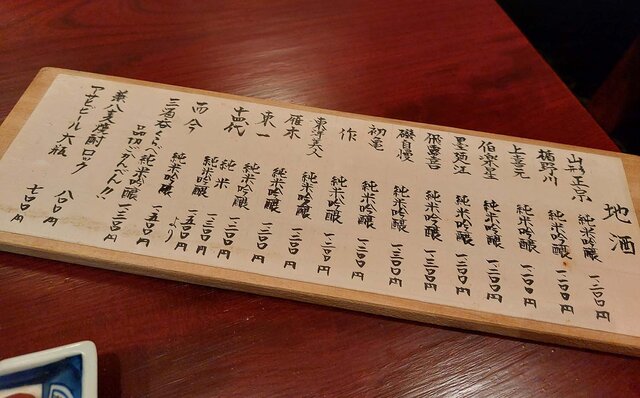 地酒
山形正宗 純米吟醸 一二〇〇円
楯野川 純米吟醸 一一〇〇円
上喜元 純米吟醸 一一〇〇円
伯楽星 純米吟醸 一二〇〇円
墨廼江 純米吟醸 一二〇〇円
飛露喜 純米吟醸 一三〇〇円
磯自慢 純米吟醸 一三〇〇円
初亀 純米吟醸 一二〇〇円
作 純米吟醸 一二〇〇円
東洋美人 純米吟醸 一二〇〇円
雁木 純米吟醸 一二〇〇円
東一 純米吟醸 一二〇〇円
十四代 純米 一二〇〇円
而今 純米吟醸 一五〇〇円より
三酒呑くらべ 純米吟醸 一五〇〇円
品切ごめん!! 一三〇〇円
兼八麦焼酎ロック 八〇〇円
アサヒビール大瓶 七〇〇円